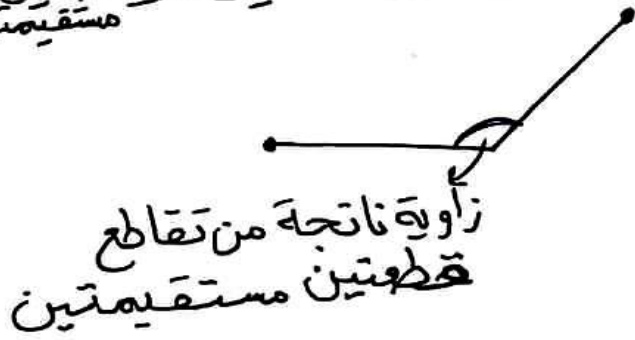 مستقيمت
زاوية ناتجة من تقاطع
قطعتين مستقيمتين